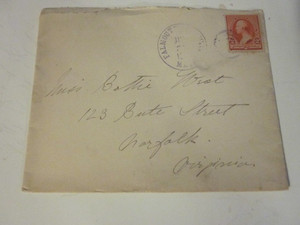 FALMOUTH
Miss Cottie West
123 Bute Street
Norfolk.
Virginia.